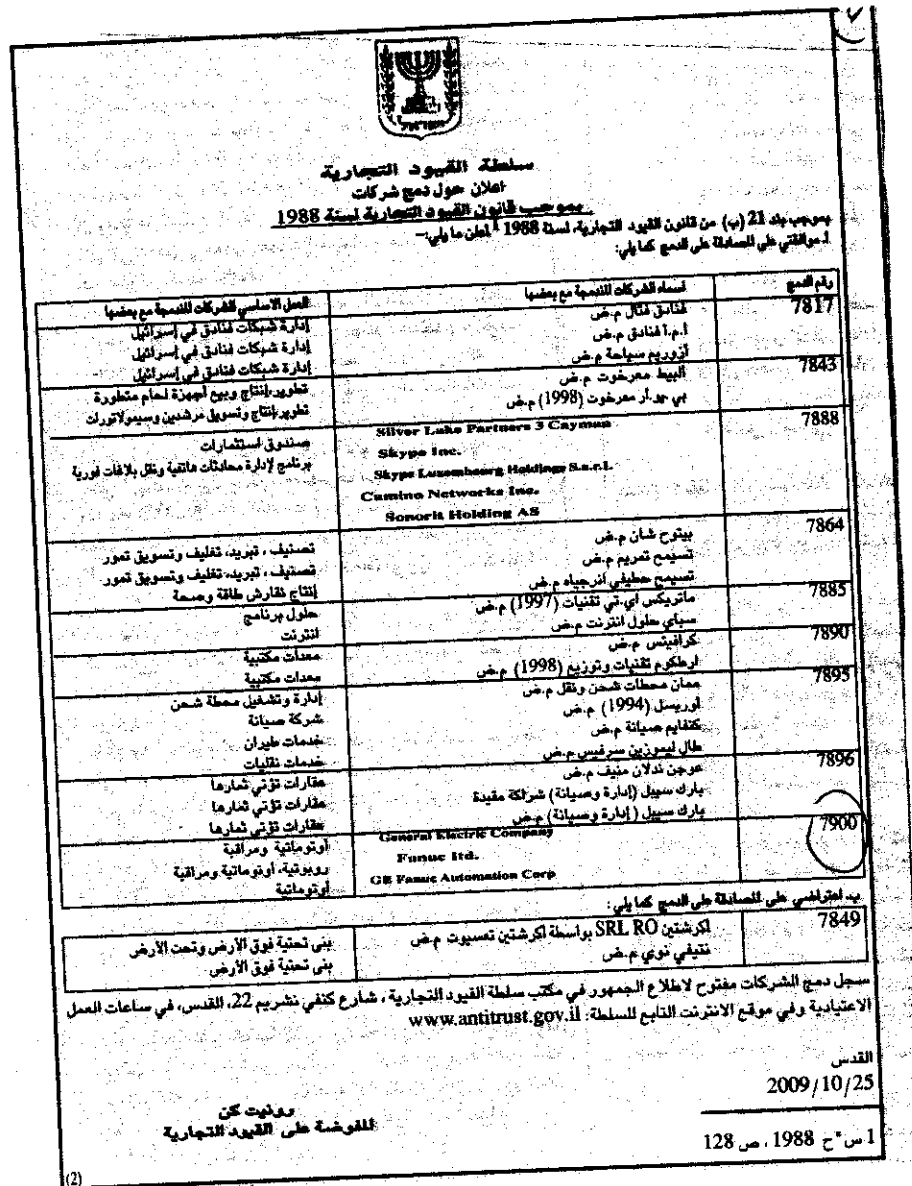 سلطة القيود التجارية
اعلان حول دمج شركات
بموجب قانون القيود التجارية لسنة 1988
بموجب بند 21 (ب) من قانون القيود التجارية، لسنة 1988 1 اعلن ما يلي:–
أ. موافقتي على المصادقة على الدمج كما يلي:
رقم الدمج أسماء الشركات المندمجة مع بعضها العمل الاساسي للشركات المندمجة مع بعضها
7817 فنادق فتال م.ض إدارة شبكات فنادق في إسرائيل
أ.م.أ فنادق م.ض إدارة شبكات فنادق في إسرائيل
أزوريم سياحة م.ض إدارة شبكات فنادق في إسرائيل
7843 ألبيط معرخوت م.ض تطوير،إنتاج وبيع أجهزة لحام متطورة
بي.جو.أر معرخوت (1998) م.ض تطوير،إنتاج وتسويق مرشدين وسيمولاتورات
7888 Silver Lake Partners 3 Cayman صندوق استثمارات
Skype Inc. برنامج لإدارة محادثات هاتفية ونقل بلاغات فورية
Skype Luxembourg Holdings S.a.r.l.
Camino Networks Inc.
Sonorit Holding AS
7864 بيتوح شان م.ض تصنيف ، تبريد، تغليف وتسويق تمور
تسيمح تمريم م.ض تصنيف ، تبريد، تغليف وتسويق تمور
تسيمح حطيفي انرجياه م.ض إنتاج نقارش طاقة وصحة
7885 ماتريكس اي.تي تقنيات (1997) م.ض حلول برنامج
سباي حلول انترنت م.ض انترنت
7890 كرافيتس م.ض معدات مكتبية
ارطكوم تقنيات وتوزيع (1998) م.ض معدات مكتبية
7895 ممان محطات شحن ونقل م.ض إدارة وتشغيل محطة شحن
أوريسل (1994) م.ض شركة صيانة
كنفايم صيانة م.ض خدمات طيران
طال ليموزين سرفيس م.ض خدمات نقليات
7896 عوجن ندلان منيف م.ض عقارات تؤتي ثمارها
بارك سيبل (إدارة وصيانة) شراكة مقيدة عقارات تؤتي ثمارها
بارك سيبل (إدارة وصيانة) م.ض عقارات تؤتي ثمارها
7900 General Electric Company أوتوماتية ومراقبة
Fanuc ltd. روبوتية، أوتوماتية ومراقبة
GE Fanuc Automation Corp أوتوماتية
ب. اعتراضي على المصادقة على الدمج كما يلي:
7849 اكرشتين SRL RO بواسطة اكرشتين تعسيوت م.ض بنى تحتية فوق الأرض وتحت الأرض
نتيفي نوي م.ض بنى تحتية فوق الأرض
سجل دمج الشركات مفتوح لاطلاع الجمهور في مكتب سلطة القيود التجارية ، شارع كنفي نشريم 22، القدس، في ساعات العمل
الاعتيادية وفي موقع الانترنت التابع للسلطة: www.antitrust.gov.il
القدس
2009/10/25
رونيت كن
المفوضة على القيود التجارية
1 س"ح 1988 ، ص 128
(2)